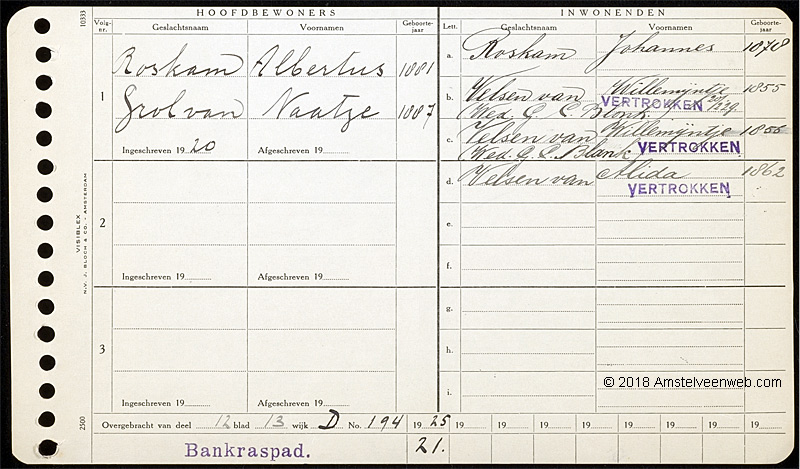 HOOFDBEWONERS
Volg-nr. Geslachtsnaam Voornamen Geboorte-jaar
1
Roskam Albertus 1881
Grol van Naatze 1887
Ingeschreven 1920 Afgeschreven 19
2
Ingeschreven 19 Afgeschreven 19
3
Ingeschreven 19 Afgeschreven 19
INWONENDEN
Lett. Geslachtsnaam Voornamen Geboorte-jaar
a. Roskam Johannes 1878
b. Velsen van Willemijntje 1855
VERTROKKEN
Wed. G. C. Blonk
c. Velsen van Willemijntje 1856
Wed. G. C. Blank VERTROKKEN
d. Velsen van Alida 1862
VERTROKKEN
e.
f.
g.
h.
i.
© 2018 Amstelveenweb.com
Overgebracht van deel 12 blad 13 wijk D No. 194 1925 19 19 19 19 19 19 19 19
Bankraspad. 21.
10333
VISIBLEX
N.V. J. BLOCH & CO. - AMSTERDAM
2500